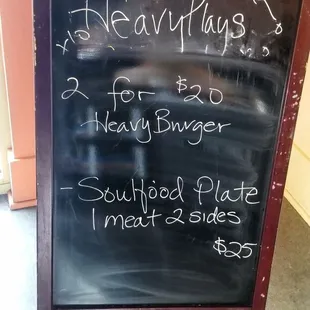 HeavyPlays
2 for $20
Heavy Burger
- Soulfood Plate
1 meat 2 sides
$25